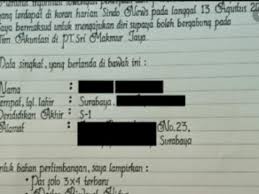 yang terdapat di koran harian Sindo News pada tanggal 13 Agustus
Saya bermaksud untuk mengajukan diri supaya boleh bergabung pada
Tim Akuntasi di PT.Sri Makmur Jaya.
Data singkat, yang bertanda di bawah ini :
Nama :
Tempat, tgl. lahir : Surabaya,
Pendidikan Akhir : S-1
Alamat : No.23,
Surabaya
bahan pertimbangan, saya lampirkan :
Pas foto 3x4 terbaru